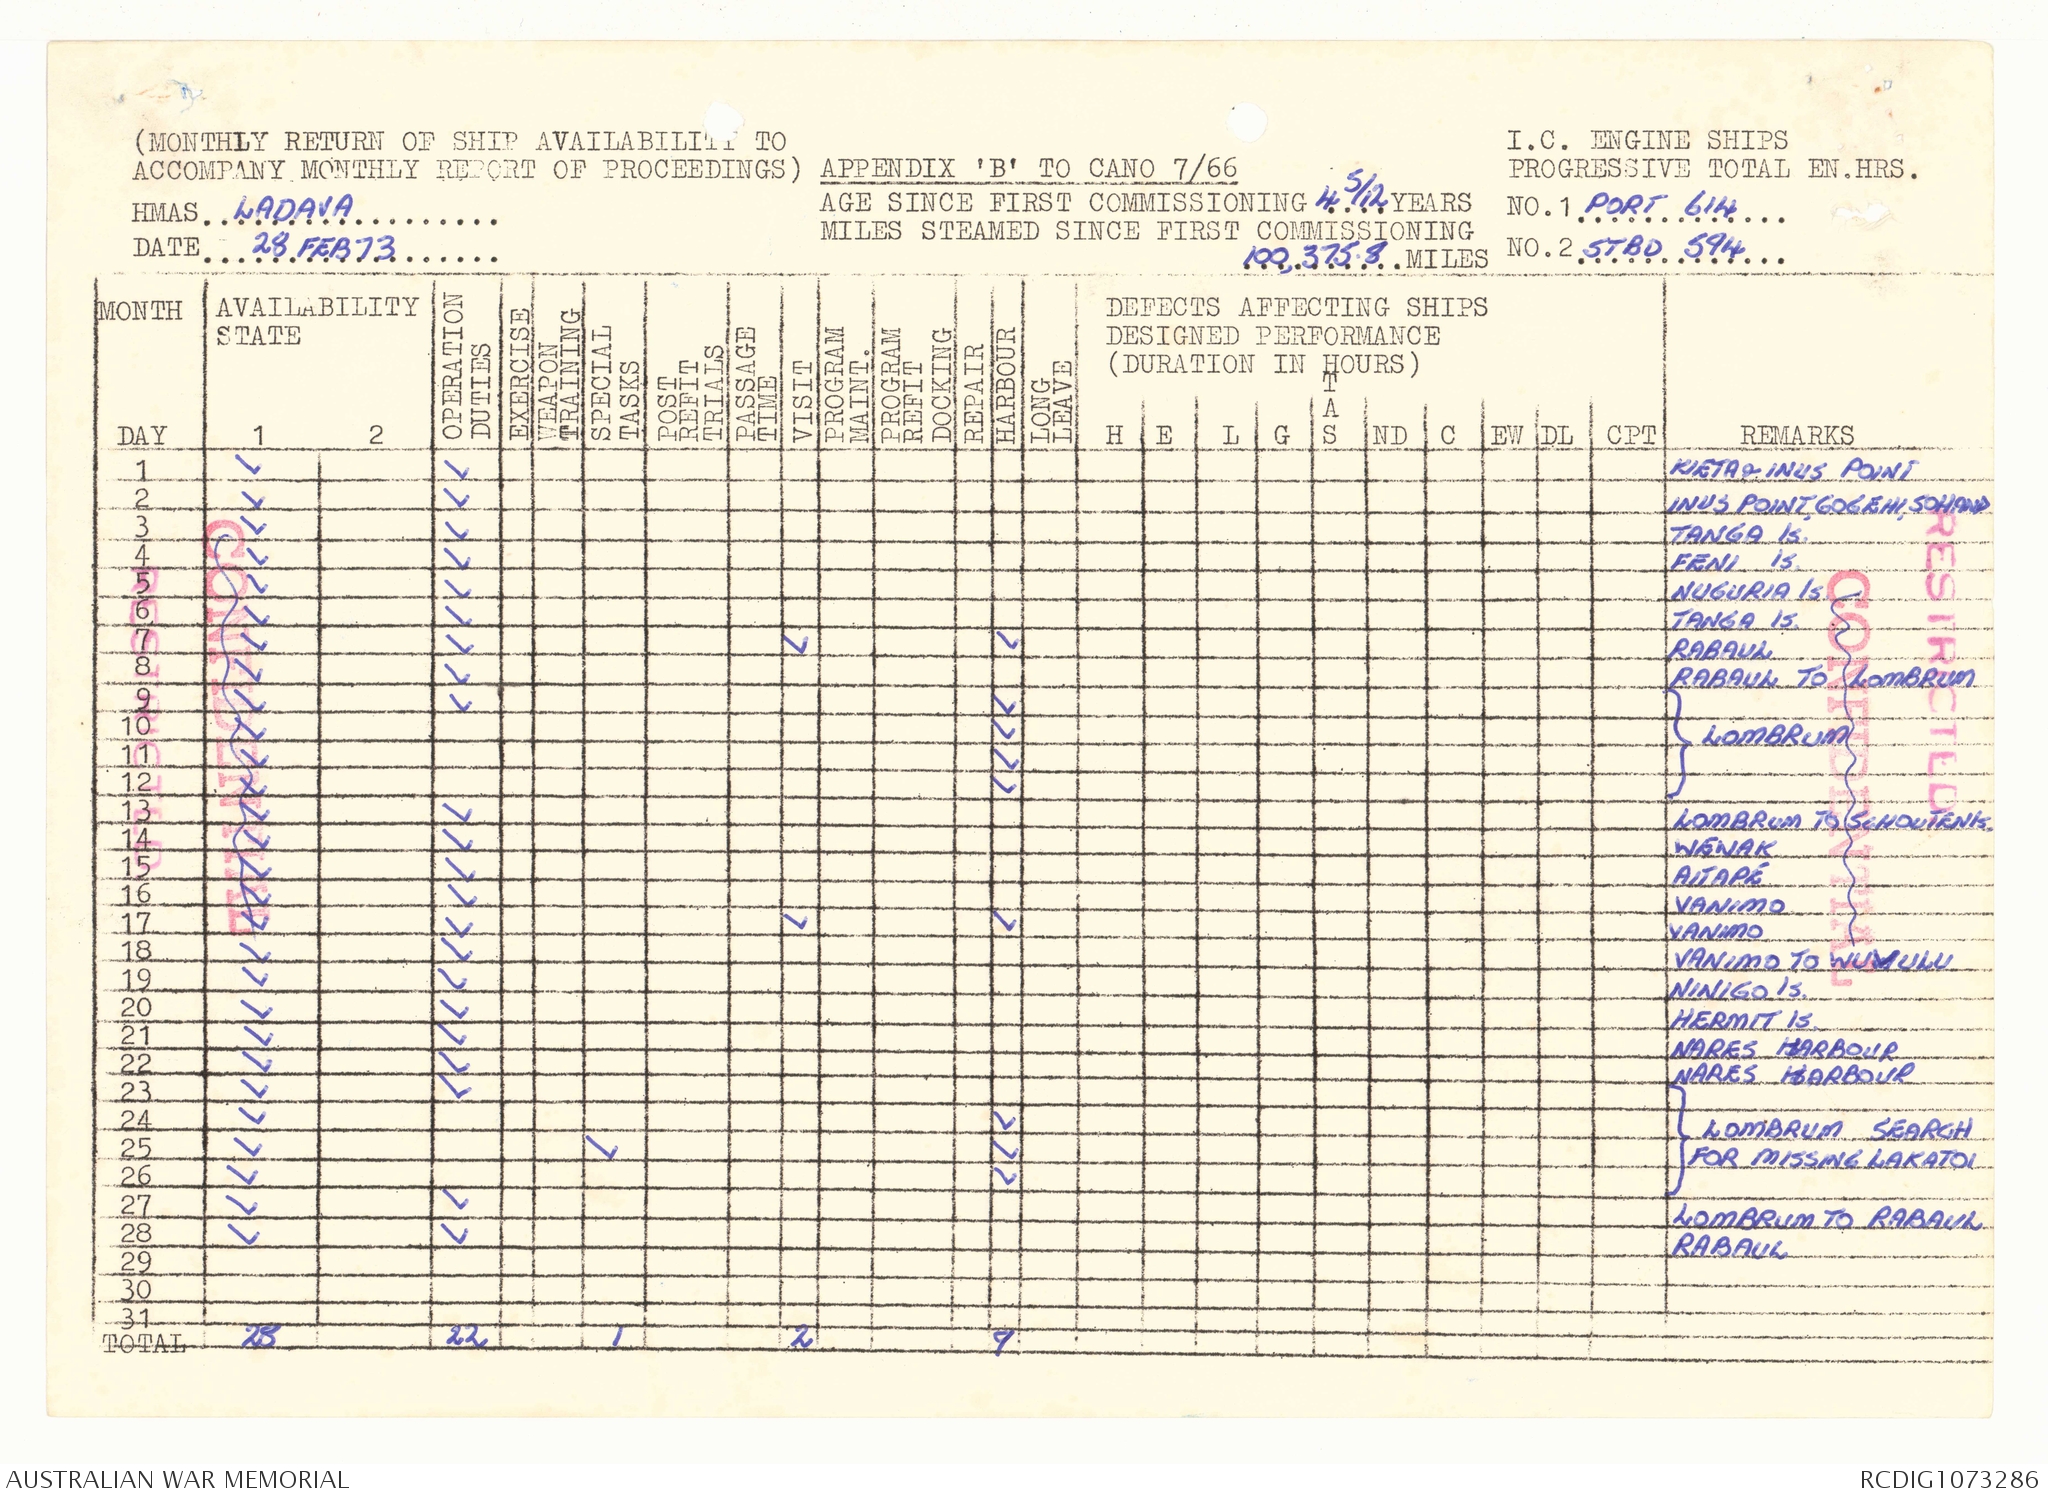 (MONTHLY RETURN OF SHIP AVAILABILITY TO
ACCOMPANY MONTHLY REPORT OF PROCEEDINGS) APPENDIX 'B' TO CANO 7/66
I.C. ENGINE SHIPS
PROGRESSIVE TOTAL EN.HRS.
HMAS LADAVA
AGE SINCE FIRST COMMISSIONING 4 5/12 YEARS
NO.1 PORT 614
MILES STEAMED SINCE FIRST COMMISSIONING
DATE 28 FEB 73
100,375.8 MILES
NO.2 STBD 594
MONTH
AVAILABILITY
STATE
OPERATION
DUTIES
EXERCISE
WEAPON
TRAINING
SPECIAL
TASKS
POST
REFIT
TRIALS
PASSAGE
TIME
VISIT
PROGRAM
MAINT.
PROGRAM
REFIT
DOCKING
REPAIR
HARBOUR
LONG
LEAVE
DEFECTS AFFECTING SHIPS
DESIGNED PERFORMANCE
(DURATION IN HOURS)
DAY 1 2 H E L G TAS ND C EW DL CPT REMARKS
1 ✓ ✓ KIETA & INUS POINT
2 ✓ ✓ INUS POINT, GOGEHI, SOHANO
3 ✓ ✓ TANGA Is.
4 ✓ ✓ FENI Is.
5 ✓ ✓ NUGURIA Is
6 ✓ ✓ TANGA Is.
7 ✓ ✓ ✓ ✓ RABAUL
8 ✓ ✓ RABAUL TO LOMBRUM
9 ✓ ✓ ✓
10 ✓ ✓ LOMBRUM
11 ✓ ✓
12 ✓ ✓
13 ✓ ✓ LOMBRUM TO SCHOUTEN Is.
14 ✓ ✓ WEWAK
15 ✓ ✓ AITAPE
16 ✓ ✓ VANIMO
17 ✓ ✓ ✓ ✓ VANIMO
18 ✓ ✓ VANIMO TO WUVULU
19 ✓ ✓ NINIGO Is.
20 ✓ ✓ HERMIT Is.
21 ✓ ✓ NARES HARBOUR
22 ✓ ✓ NARES HARBOUR
23 ✓ ✓
24 ✓ ✓ LOMBRUM SEARCH
25 ✓ ✓ ✓ FOR MISSING LAKATOI
26 ✓ ✓
27 ✓ ✓ LOMBRUM TO RABAUL
28 ✓ ✓ RABAUL
29
30
31
TOTAL 28 22 1 2 9
CONFIDENTIAL
RESTRICTED
CONFIDENTIAL
RESTRICTED
AUSTRALIAN WAR MEMORIAL
RCDIG1073286